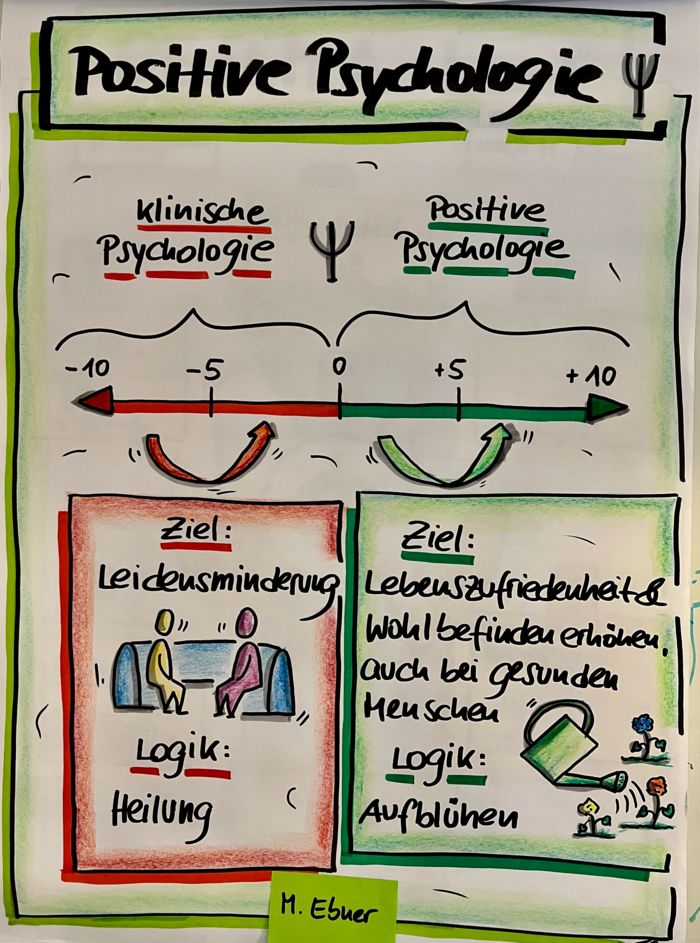 Positive Psychologie Ψ
Klinische
Psychologie
Ψ
Positive
Psychologie
-10 -5 0 +5 +10
Ziel:
Leidensminderung
Logik:
Heilung
Ziel:
Lebenszufriedenheit &
Wohlbefinden erhöhen,
auch bei gesunden
Menschen
Logik:
Aufblühen
M. Ebner